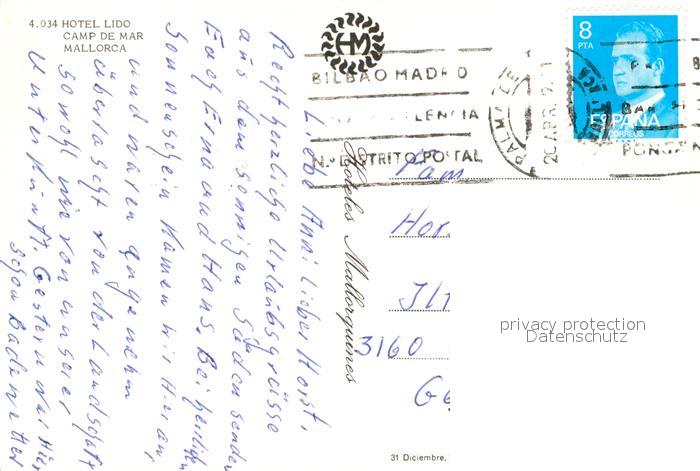 4.034 HOTEL LIDO
CAMP DE MAR
MALLORCA
Liebe Andi, Lieber Horst,
Recht herzliche Urlaubsgrüsse
aus dem sonnigen Süden senden
Euch Erna und Hans. Bei herrlichem
Sonnenschein kamen wir hier an
und waren angenehm
überrascht von der Landschaft
sowohl wie von unserer
Unterkunft. Gestern war hier
schon Badewetter
Hoteles Mallorquines
HM
BILBAO MADRID
VALENCIA
N.º DISTRITO POSTAL
PALMA DE
20 APR.
8
PTA
ESPAÑA
CORREOS
BAR
PONGA N
Fam
Hor
3160
Ge
31 Diciembre,
privacy protection
Datenschutz